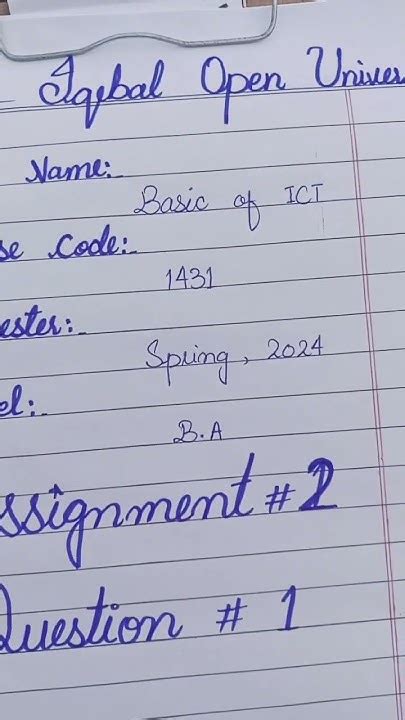 Iqbal Open Univer
Name:
Basic of ICT
se Code:
1431
ester:
Spring, 2024
el:
B.A
ssignment # 2
Question # 1